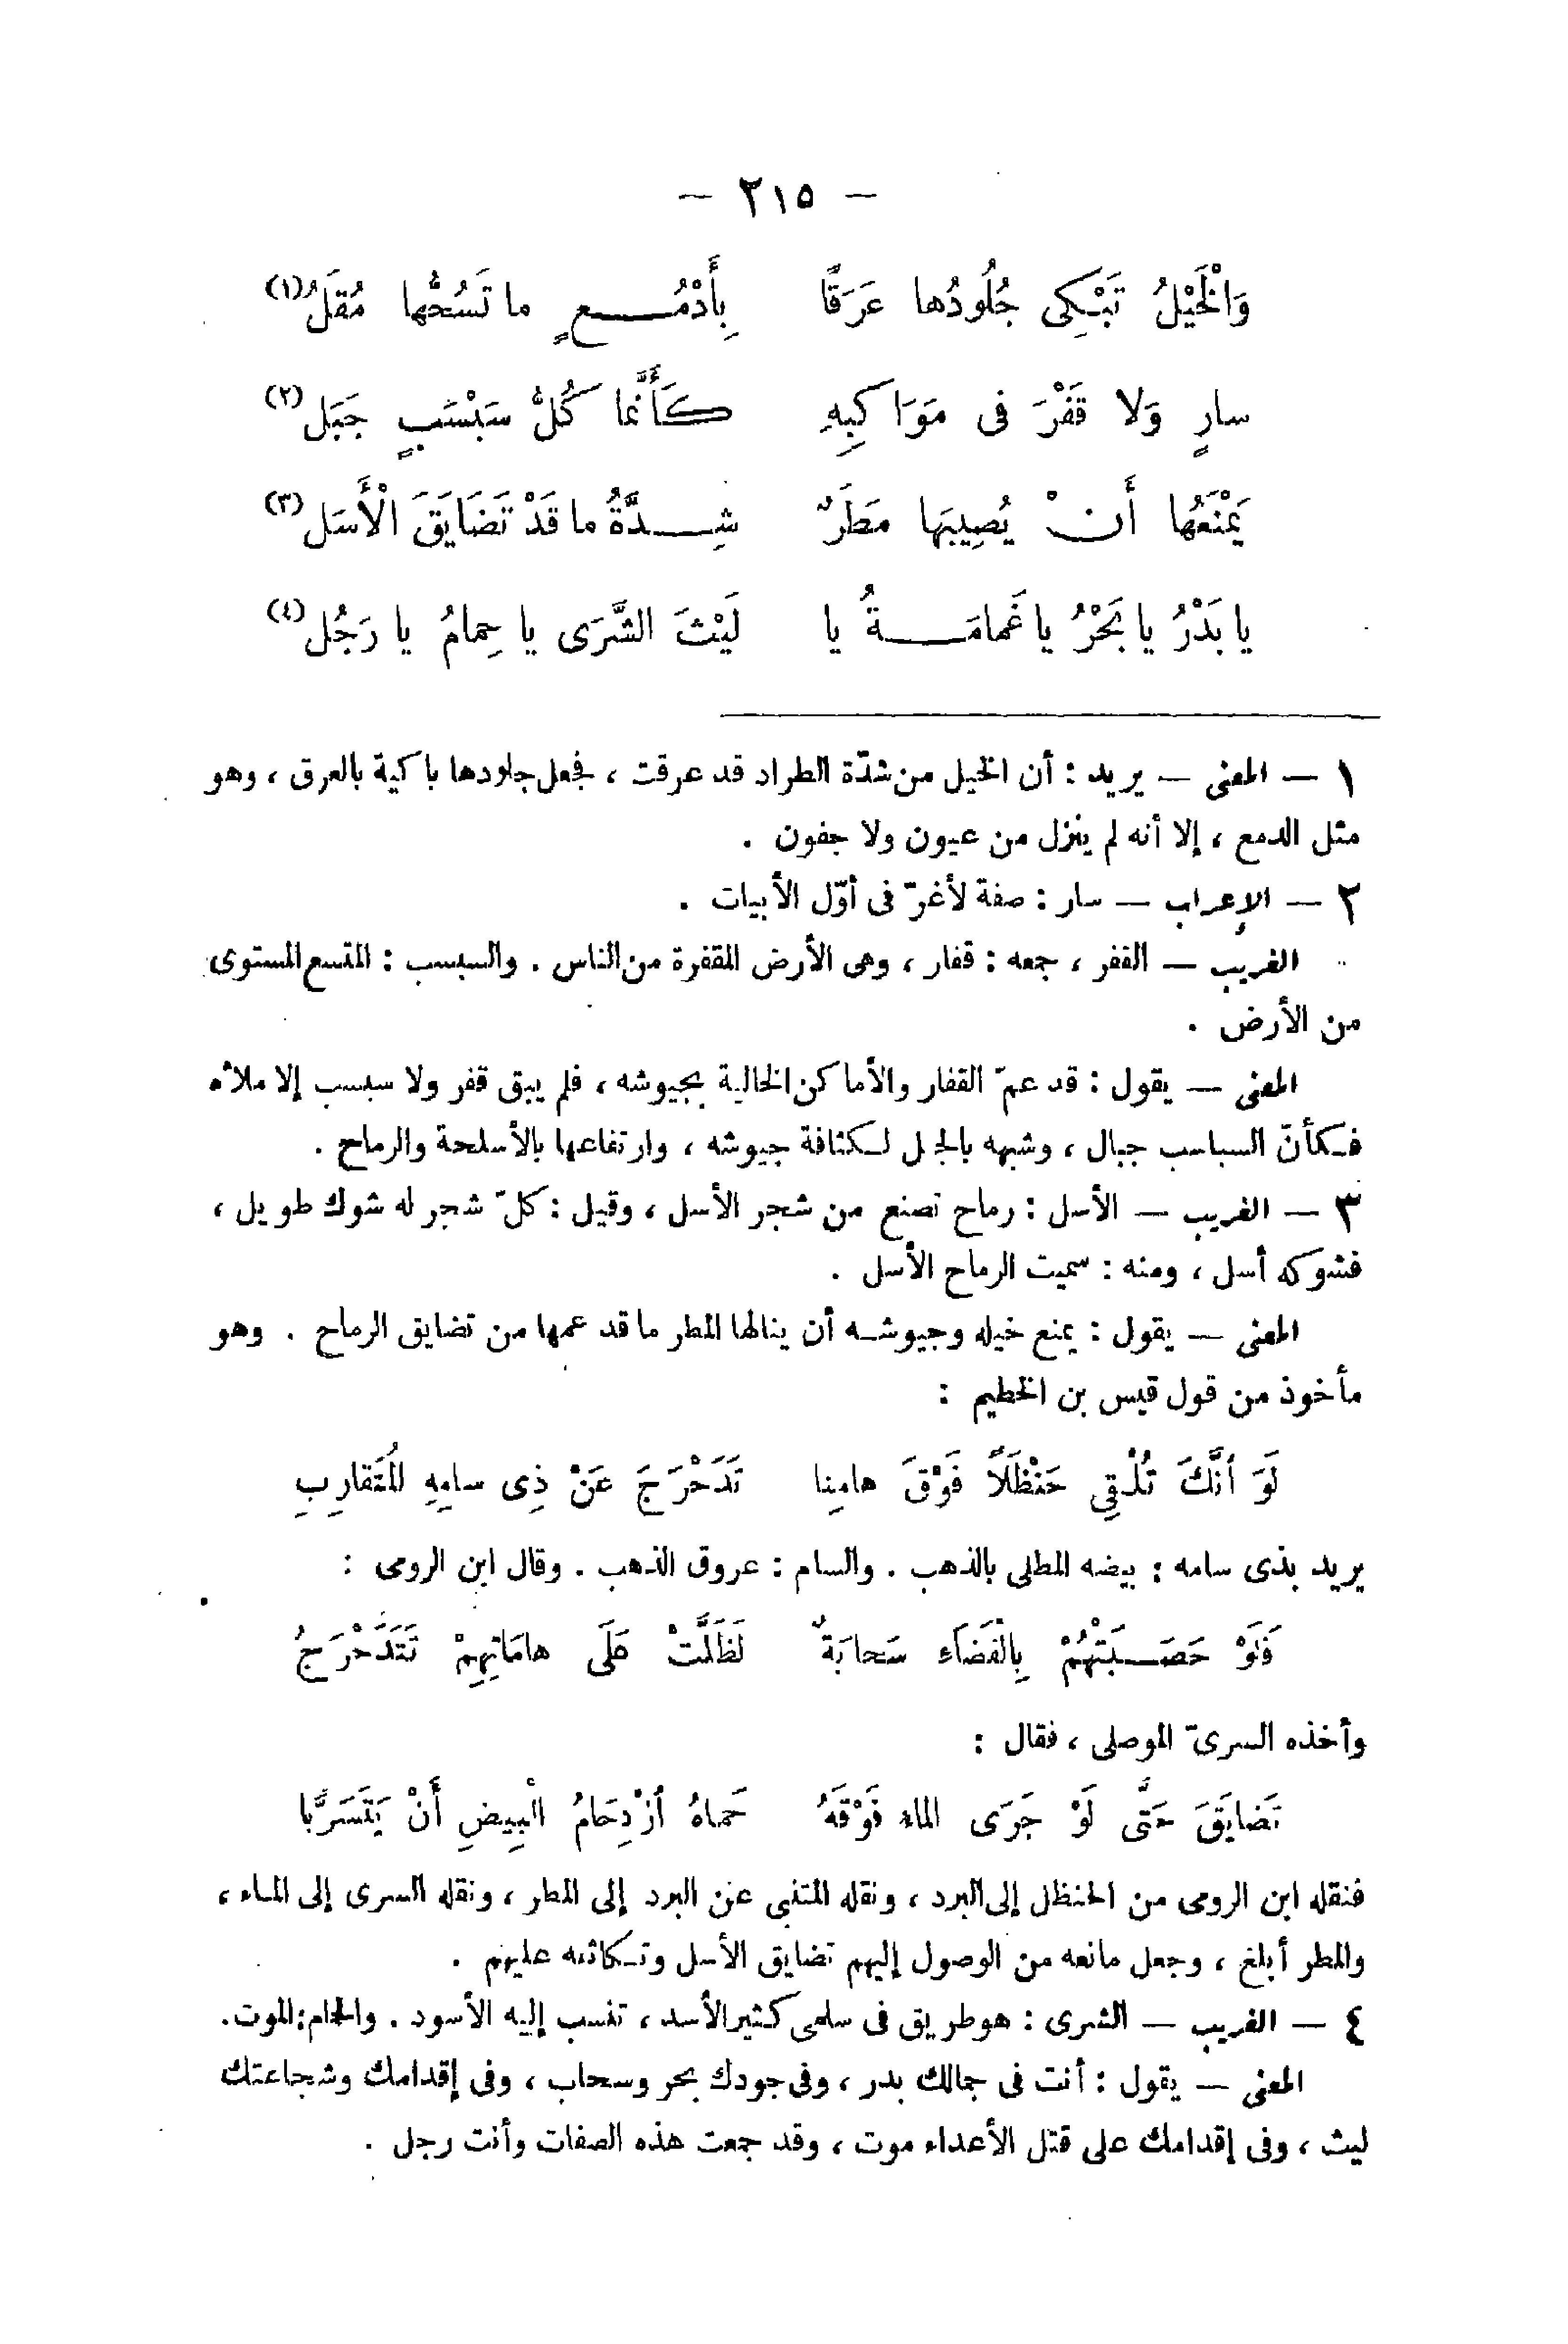 — ٢١٥ —
وَالْخَيْلُ تَبْكِى جُلُودُها عَرَقًا بِأَدْمُعٍ ما تَسُحُّها مُقَلُ(١)
سارٍ وَلا قَفْرَ فى مَوَاكِبِهِ كَأَنَّما كُلُّ سَبْسَبٍ جَبَل(٢)
يَمْنَعُها أَنْ يُصِيبَهَا مَطَرٌ شِدَّةُ ما قَدْ تَضَايَقَ الْأَسَل(٣)
يا بَدْرُ يا بَحْرُ يا غَمامَةُ يا لَيْثَ الشَّرَى يا حِمامُ يا رَجُل(٤)
١ — المعنى — يريد : أن الخيل من شدّة الطراد قد عرقت ، فجعل جلودها باكية بالعرق ، وهو
مثل الدمع ، إلا أنه لم ينزل من عيون ولا جفون .
٢ — الإعراب — سار : صفة لأغرّ فى أوّل الأبيات .
الغريب — القفر ، جمعه : قفار ، وهى الأرض المقفرة من الناس . والسبسب : المتسع المستوى
من الأرض .
المعنى — يقول : قد عمّ القفار والأماكن الخالية بجيوشه ، فلم يبق قفر ولا سبسب إلا ملأه
فكأنّ السباسب جبال ، وشبهه بالجبل لكثافة جيوشه ، وارتفاعها بالأسلحة والرماح .
٣ — الغريب — الأسل : رماح تصنع من شجر الأسل ، وقيل : كلّ شجر له شوك طويل ،
فشوكه أسل ، ومنه : سميت الرماح الأسل .
المعنى — يقول : يمنع خيله وجيوشه أن ينالها المطر ما قد عمها من تضايق الرماح . وهو
مأخوذ من قول قيس بن الخطيم :
لَوَ أنَّكَ تُلْقِى حَنْظَلاً فَوْقَ هامِنا تَدَحْرَجَ عَنْ ذِى سامِهِ الُمتَقارِبِ
يريد بذى سامه : بيضه المطلى بالذهب . والسام : عروق الذهب . وقال ابن الرومى :
فَلَوْ حَصَبَتْهُمْ بِالْفَضَاَءِ سَحابَةٌ لَظَلَّتْ عَلَى هامَاتِهِمْ تَتَدَحْرَجُ
وأخذه السرىّ الموصلى ، فقال :
تَضايَقَ حَتَّى لَوْ جَرَى الماءُ فَوْقَهُ حَماهُ اُزْدِحَامُ الْبِيضِ أَنْ يَتَسَرَّبا
فنقله ابن الرومى من الحنظل إلى البرد ، ونقله المتنبى عن البرد إلى المطر ، ونقله السرى إلى الماء ،
والمطر أبلغ ، وجعل مانعه من الوصول إليهم تضايق الأسل وتكاثفه عليهم .
٤ — الغريب — الشرى : هو طريق فى سلمى كثير الأسد ، تنسب إليه الأسود . والحمام : الموت .
المعنى — يقول : أنت فى جمالك بدر ، وفى جودك بحر وسحاب ، وفى إقدامك وشجاعتك
ليث ، وفى إقدامك على قتل الأعداء موت ، وقد جمعت هذه الصفات وأنت رجل .